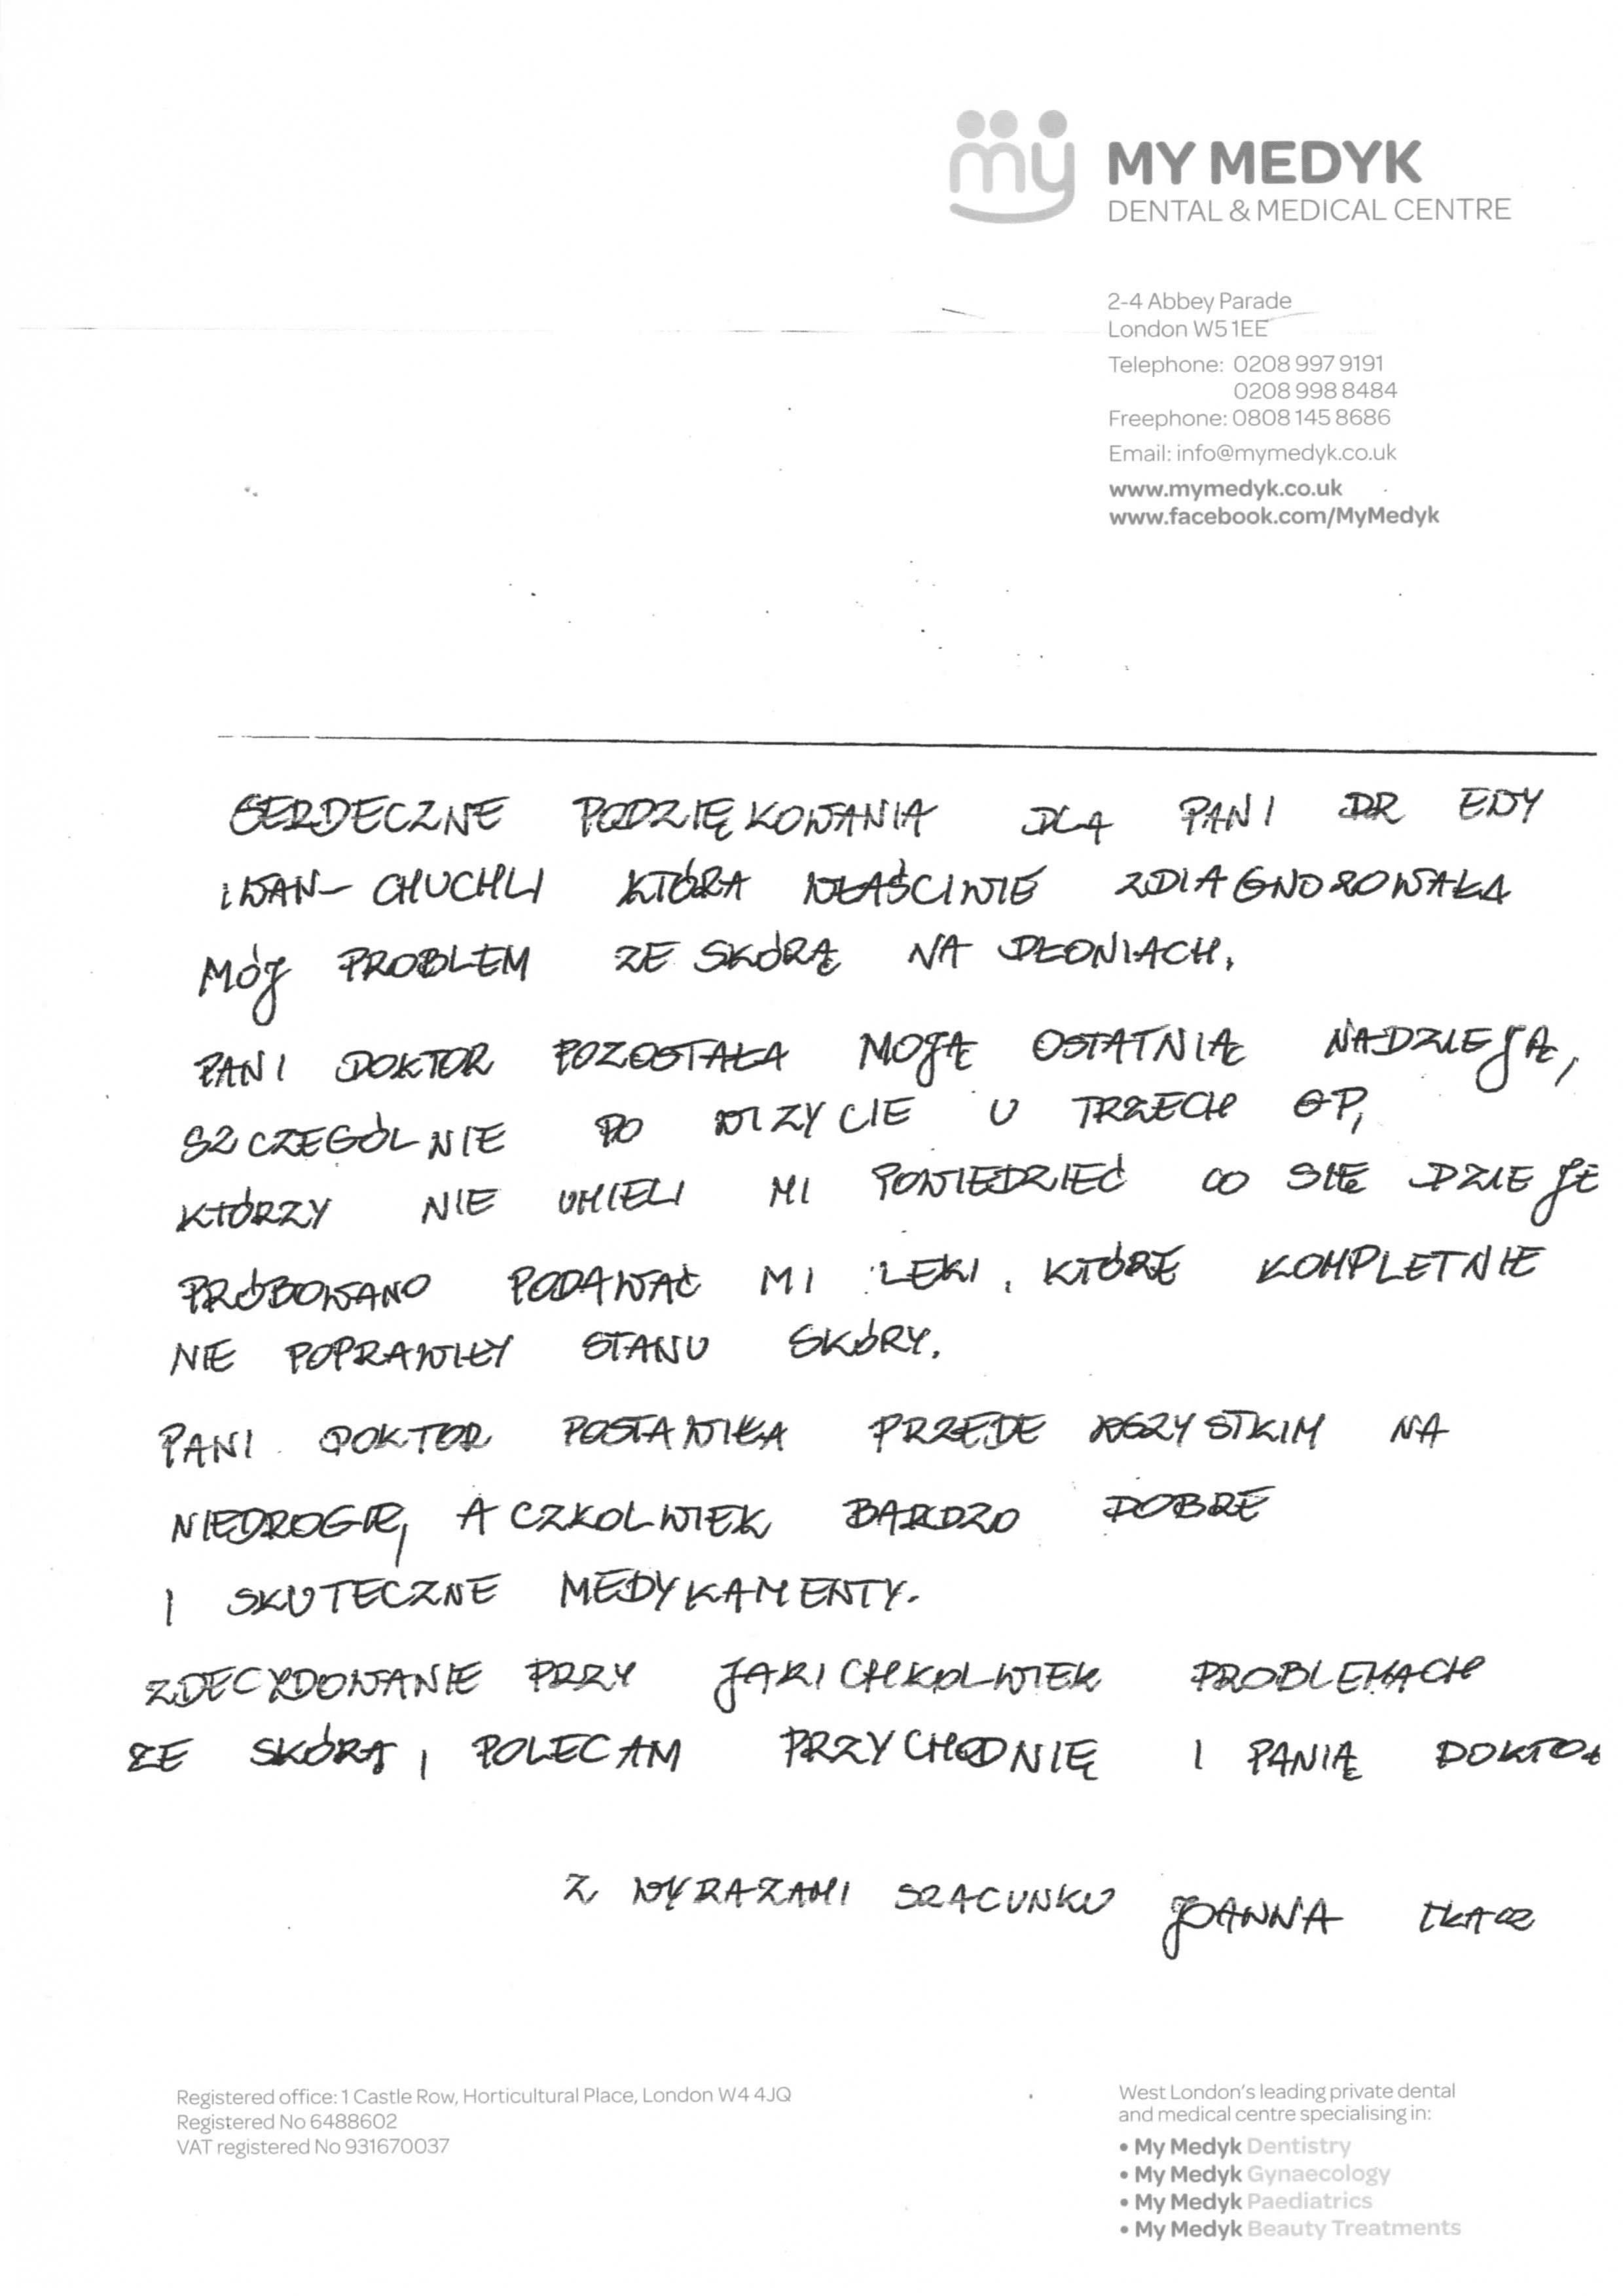 my MY MEDYK
DENTAL & MEDICAL CENTRE
2-4 Abbey Parade
London W5 1EE
Telephone: 0208 997 9191
0208 998 8484
Freephone: 0808 145 8686
Email: info@mymedyk.co.uk
www.mymedyk.co.uk
www.facebook.com/MyMedyk
SERDECZNE PODZIĘKOWANIA DLA PANI DR EDY
IWAN- CHUCHLI KTÓRA WŁAŚCIWIE ZDIAGNOZOWAŁA
MÓJ PROBLEM ZE SKÓRĄ NA DŁONIACH.
PANI DOKTOR POZOSTAŁA MOJĄ OSTATNIĄ NADZIEJĄ,
SZCZEGÓLNIE PO WIZYCIE U TRZECH GP,
KTÓRZY NIE UMIELI MI POWIEDZIEĆ CO SIĘ DZIEJE
PRÓBOWANO PODAWAĆ MI LEKI, KTÓRE KOMPLETNIE
NIE POPRAWIŁY STANU SKÓRY.
PANI DOKTOR POSTAWIŁA PRZEDE WSZYSTKIM NA
NIEDROGIE, ACZKOLWIEK BARDZO DOBRE
I SKUTECZNE MEDYKAMENTY.
ZDECYDOWANIE PRZY JAKICHKOLWIEK PROBLEMACH
ZE SKÓRĄ, POLECAM PRZYCHODNIĘ I PANIĄ DOKTOR
Z WYRAZAMI SZACUNKU JOANNA TKACZ
Registered office: 1 Castle Row, Horticultural Place, London W4 4JQ
Registered No 6488602
VAT registered No 931670037
West London's leading private dental
and medical centre specialising in:
• My Medyk Dentistry
• My Medyk Gynaecology
• My Medyk Paediatrics
• My Medyk Beauty Treatments